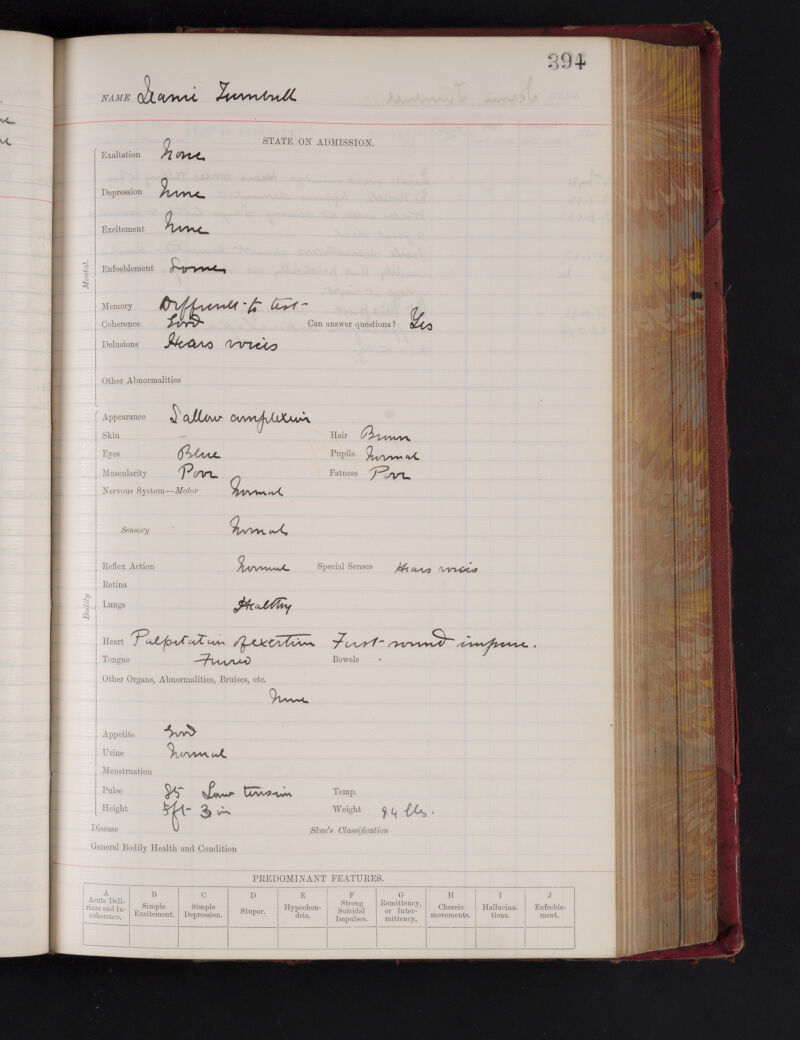 394
NAME Jeanie Turnbull
STATE ON ADMISSION.
Mental.
Exaltation None
Depression None
Excitement None
Enfeeblement Some
Memory Difficult to test
Coherence Good Can answer questions? Yes
Delusions Hears voices
Other Abnormalities
Bodily
Appearance Sallow complexion
Skin – Hair Brown
Eyes Blue Pupils Normal
Muscularity Poor Fatness Poor
Nervous System—Motor Normal
Sensory Normal
Reflex Action Normal Special Senses Hears voices
Retina
Lungs Healthy
Heart Palpitation of exertion First sound impure.
Tongue Furred Bowels .
Other Organs, Abnormalities, Bruises, etc.
None
Appetite Good
Urine Normal
Menstruation
Pulse 85 Low tension Temp.
Height 5ft- 3 in Weight 94 lbs.
Disease Skae's Classification
General Bodily Health and Condition
PREDOMINANT FEATURES.
A B C D E F G H I J
Acute Delirium and Incoherence. Simple Excitement. Simple Depression. Stupor. Hypochondria. Strong Suicidal Impulses. Remittency, or Intermittency. Choreic movements. Hallucinations. Enfeeblement.